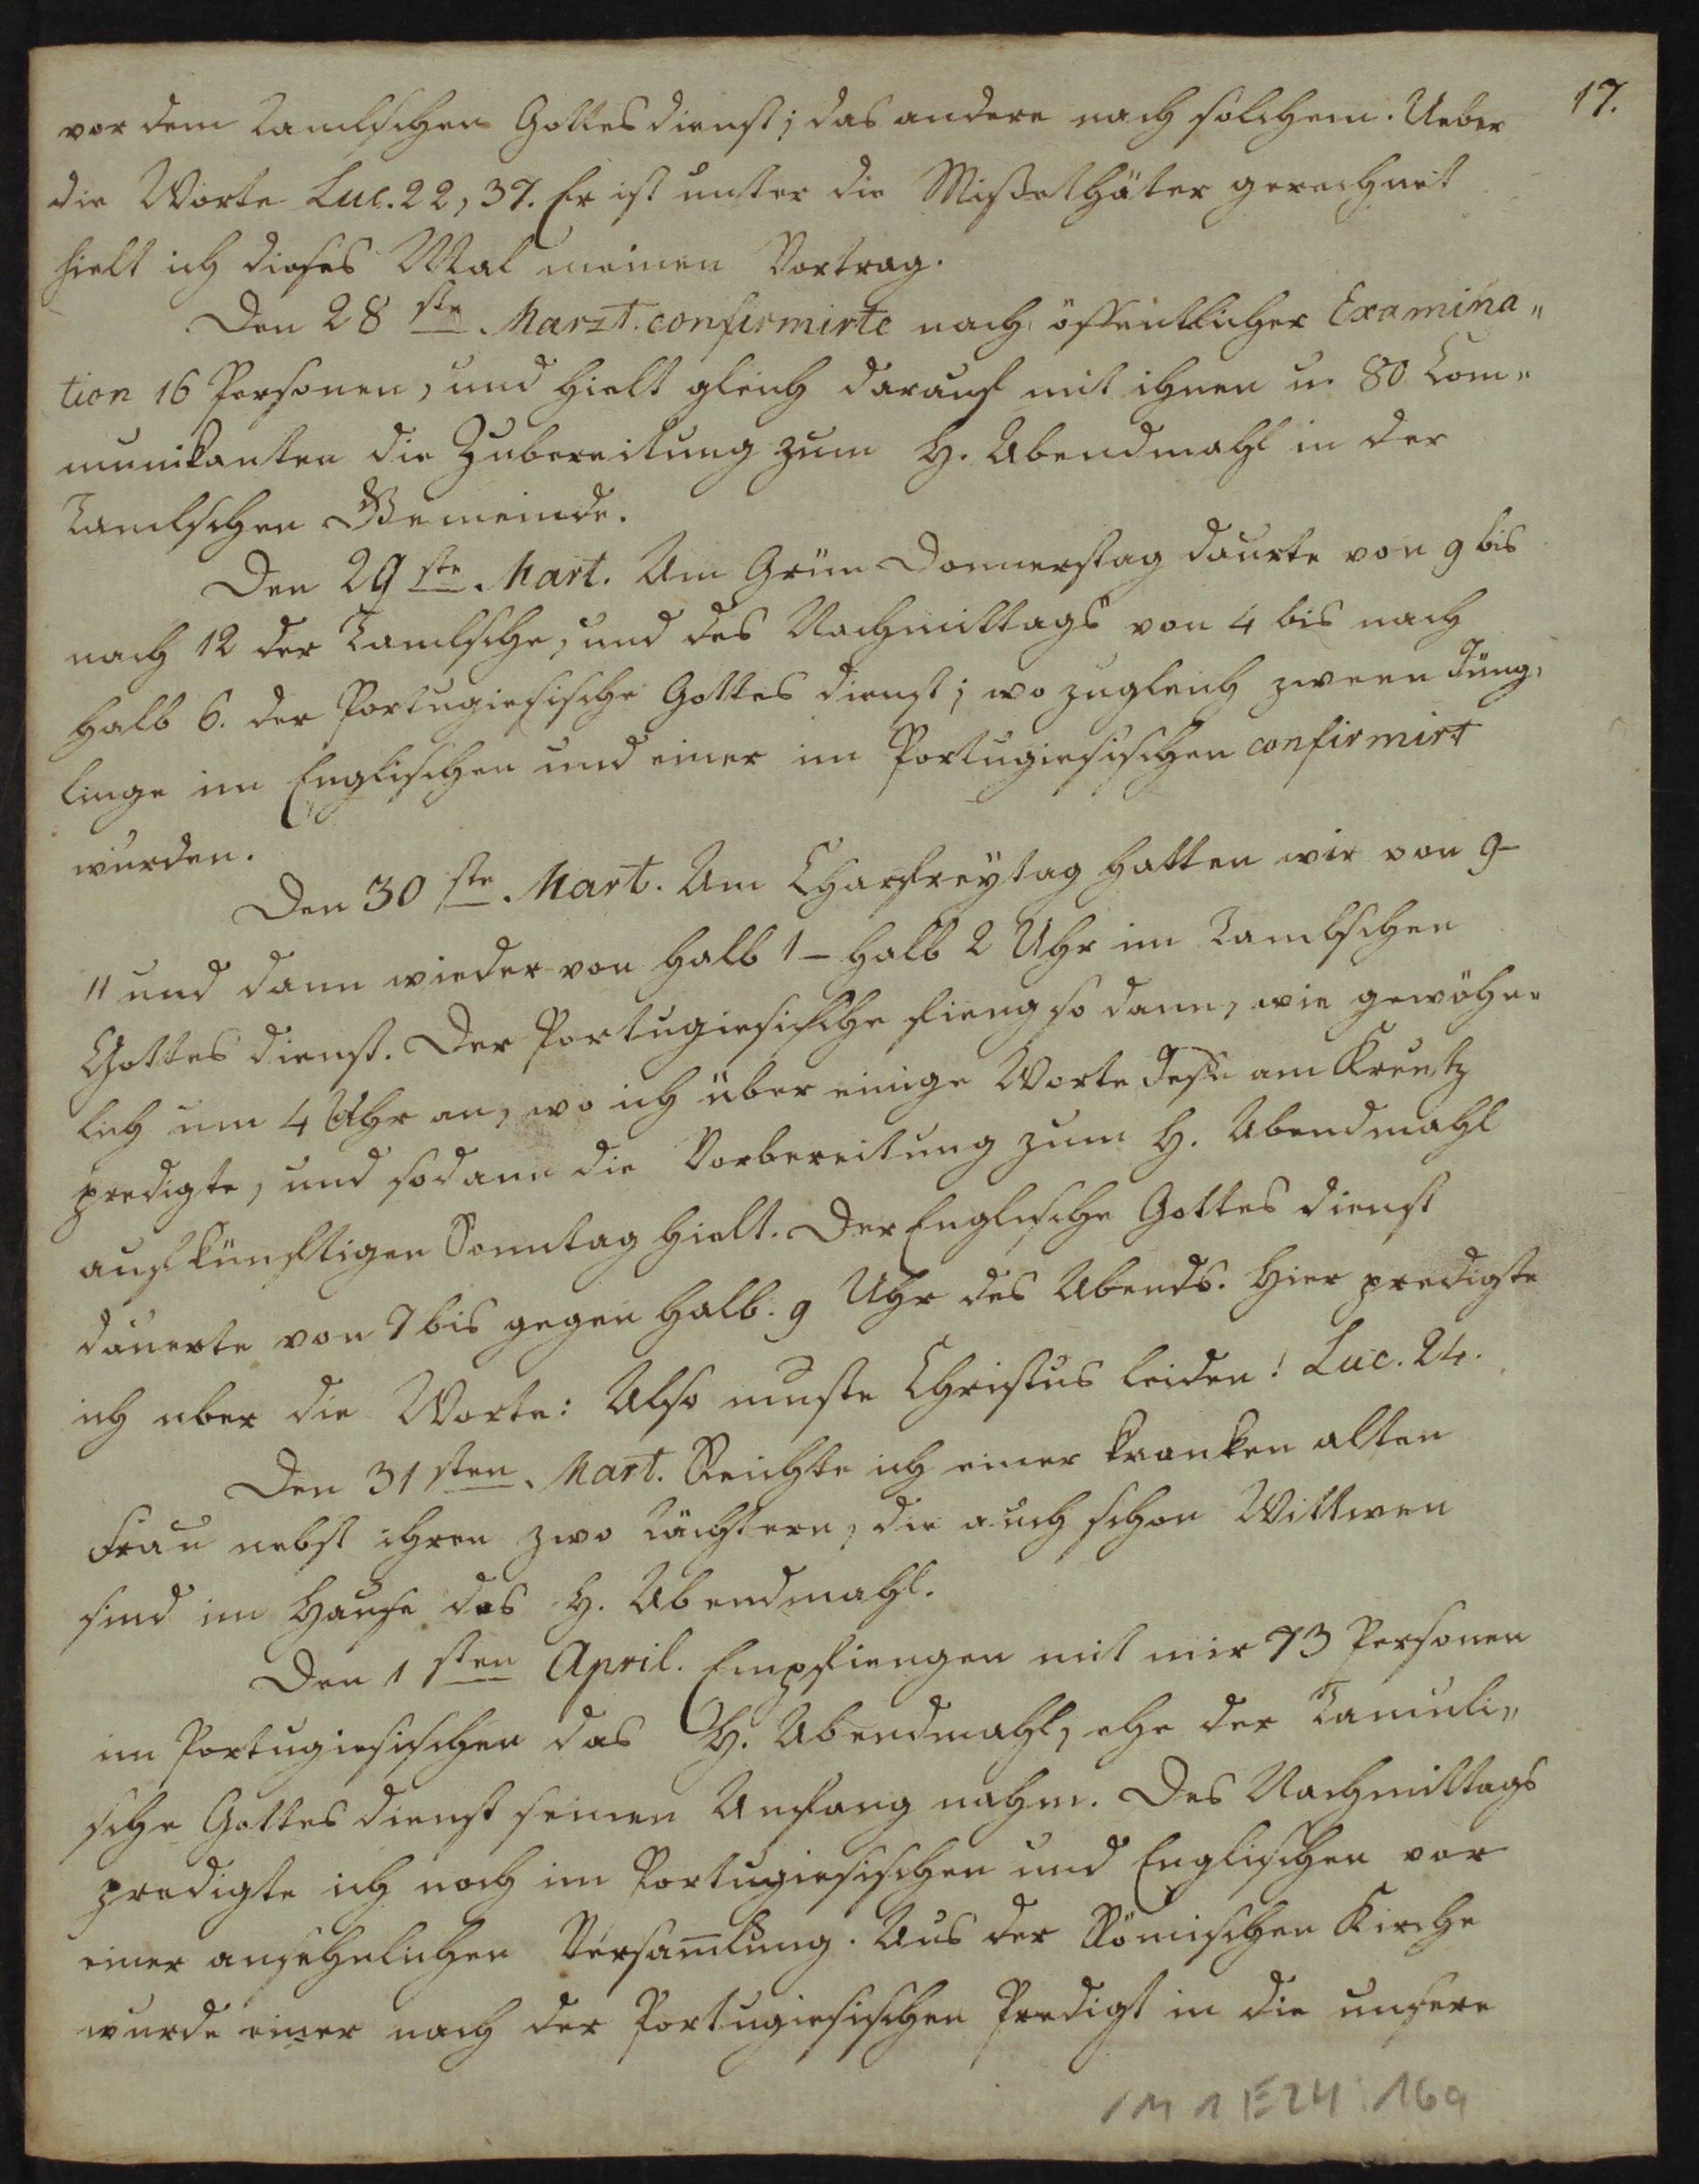 17.
vor dem Tamlschen Gottesdienst; das andere nach solchem. Ueber
die Worte Luc. 22, 37. Er ist unter die Mißethäter gerechnet
hielt ich dieses Mal meinen Vortrag.
Den 28 ste Marzt. confirmirte nach öffentlicher Examina„
tion 16 Personen, und hielt gleich darauf mit ihnen u. 80 Com„
munikanten die Zubereitung zum H. Abendmahl in der
Tamlschen Gemeinde.
Den 29 ste Mart. Am Grün Donnerstag daurte von 9 bis
nach 12 der Tamlsche, und des Nachmittags von 4 bis nach
halb 6. der Portugiesische Gottes dienst; wo zugleich zween Jüng„
linge im Englischen und einer im Portugiesischen confirmirt
wurden.
Den 30 ste Mart. Am Charfreytag hatten wir von 9–
11 und dann wieder von halb 1 – halb 2 Uhr im Tamlschen
Gottes dienst. Der Portugiesische fieng so dann, wie gewöhn„
lich um 4 Uhr an, wo ich über einige Worte Jesu am Kreutz
predigte, und sodann die Vorbereitung zum H. Abendmahl
auf künftigen Sonntag hielt. Der Englische Gottes dienst
dauerte von 7 bis gegen halb. 9 Uhr des Abends. Hier predigte
ich uber die Worte: Also muste Christus leiden! Luc. 24.
Den 31 sten Mart. Reichte ich einer kranken alten
Frau nebst ihren zwo Töchtern, die auch schon Wittwen
sind im Hause das H. Abendmahl.
Den 1 sten April. Empfiengen mit mir 73 Personen
im Portugiesischen das H. Abendmahl, ehe der Tamuli„
sche Gottes dienst seinen Anfang nahm. Des Nachmittags
predigte ich noch im Portugiesischen und Englischen vor
einer ansehnlichen Versam̅lung. Aus der Römischen Kirche
wurde einer nach der Portugiesischen Predigt in die unsere
1M 1 E24 : 169